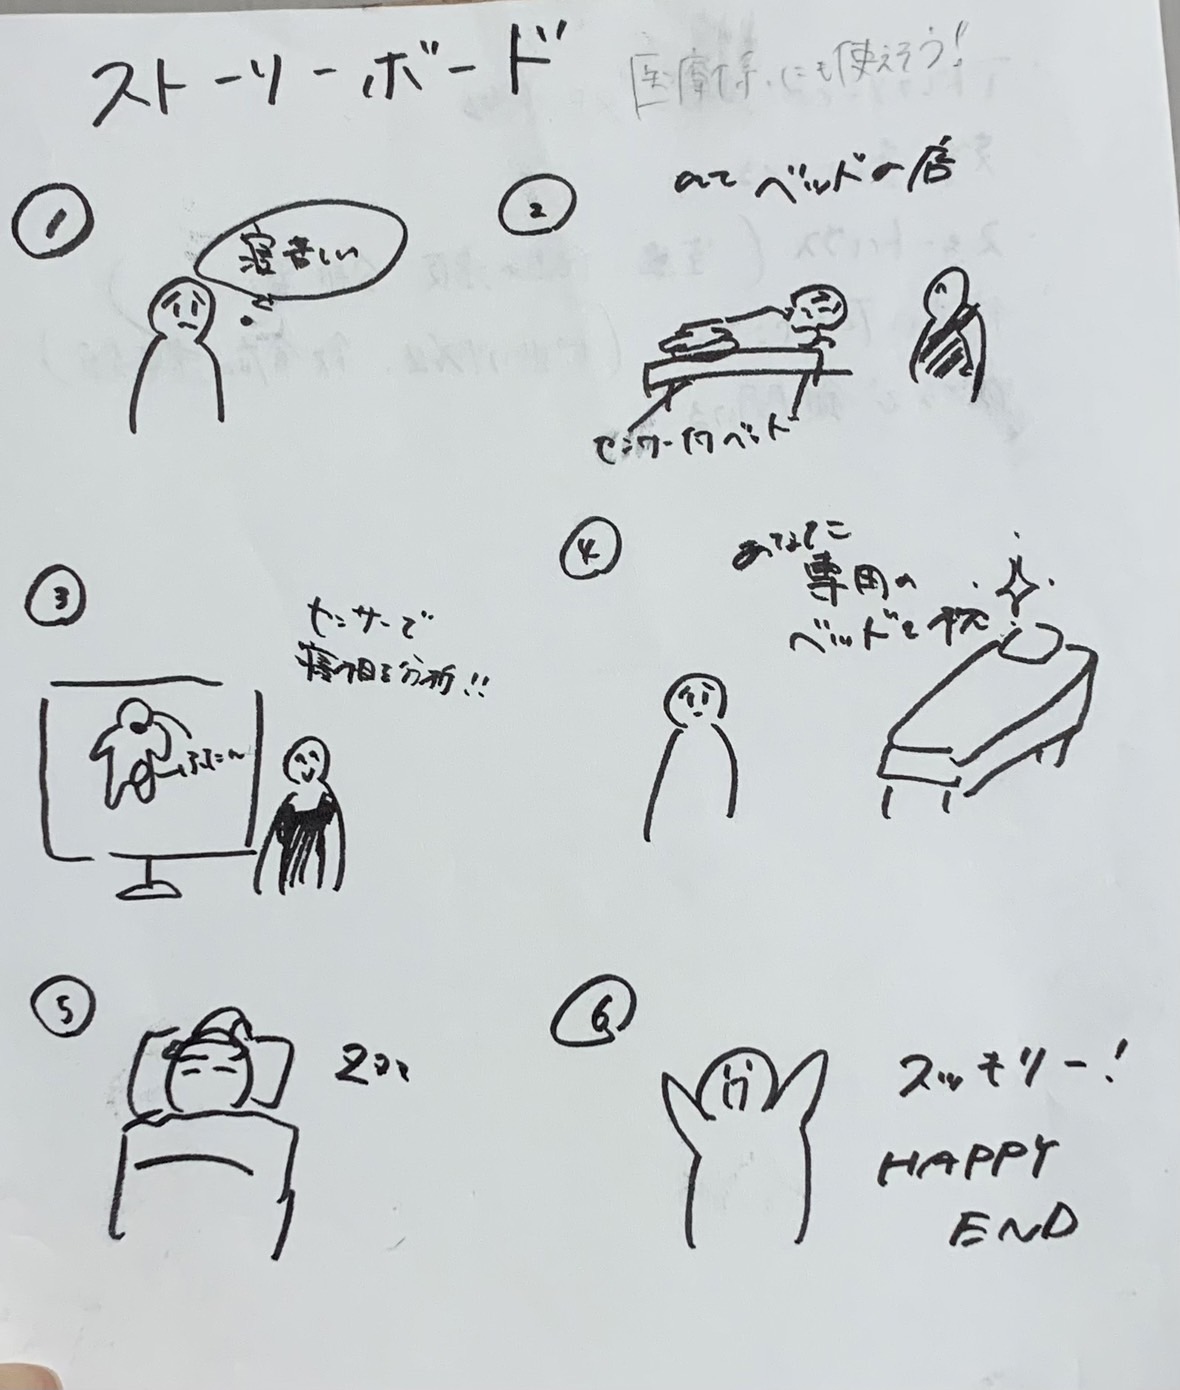 ストーリーボード
医療係にも使えそう!
①
寝苦しい
②
ベッドの店
センサー付ベッド
③
センサーで
寝相を分析!!
④
あなたに
専用の
ベッドと枕
⑤
Zzz
⑥
スッキリー!
HAPPY
END